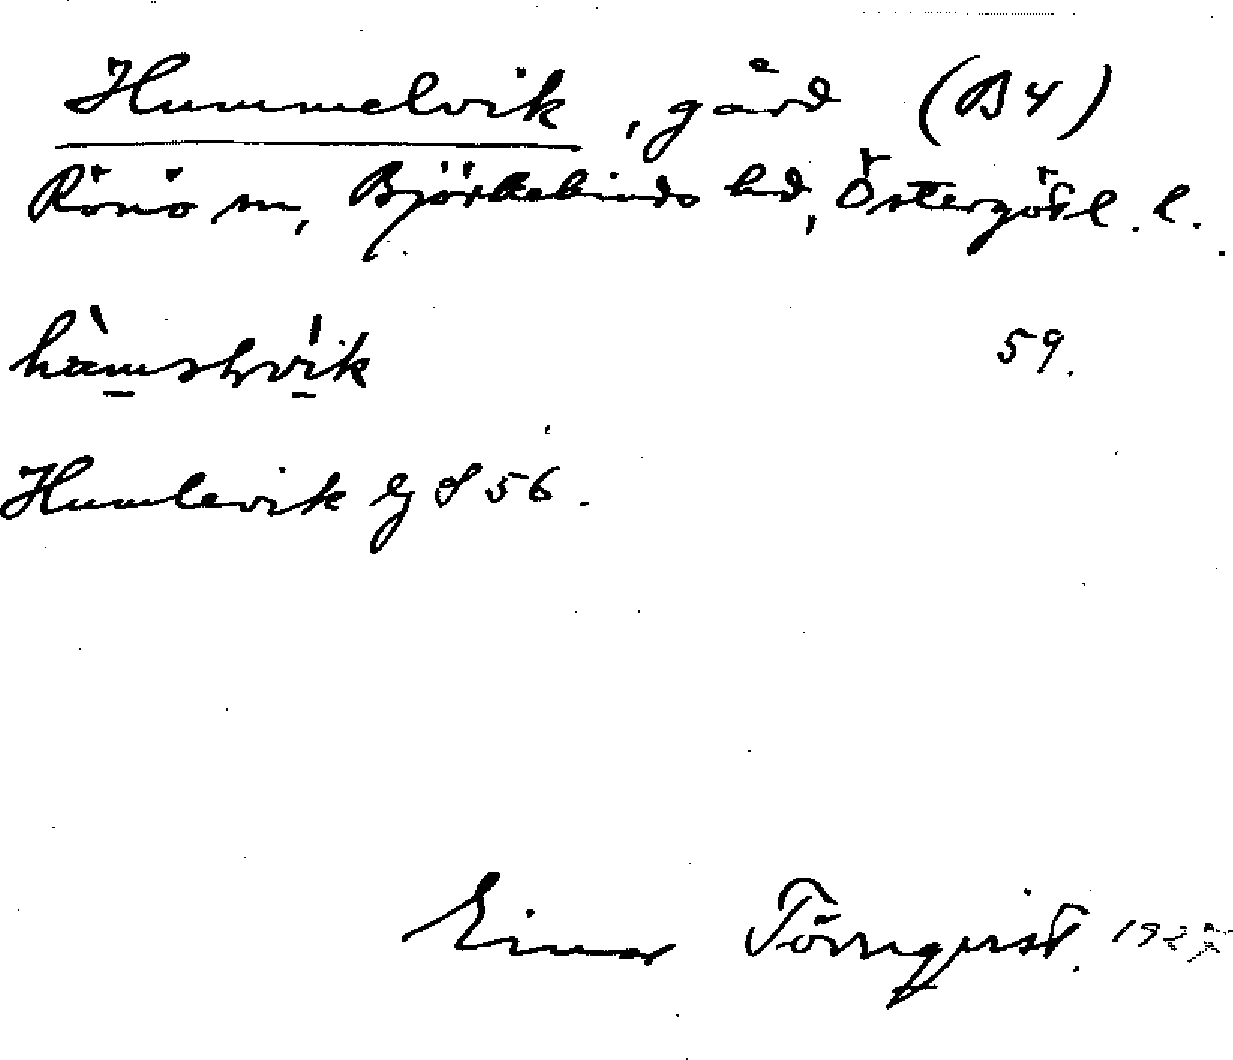 Hummelvik, gård (B4)
Rönö sn, Björkekinds hd, Östergötl. l.
59.
Humlevik Ej d 56.
Einar Törnqvist. 192